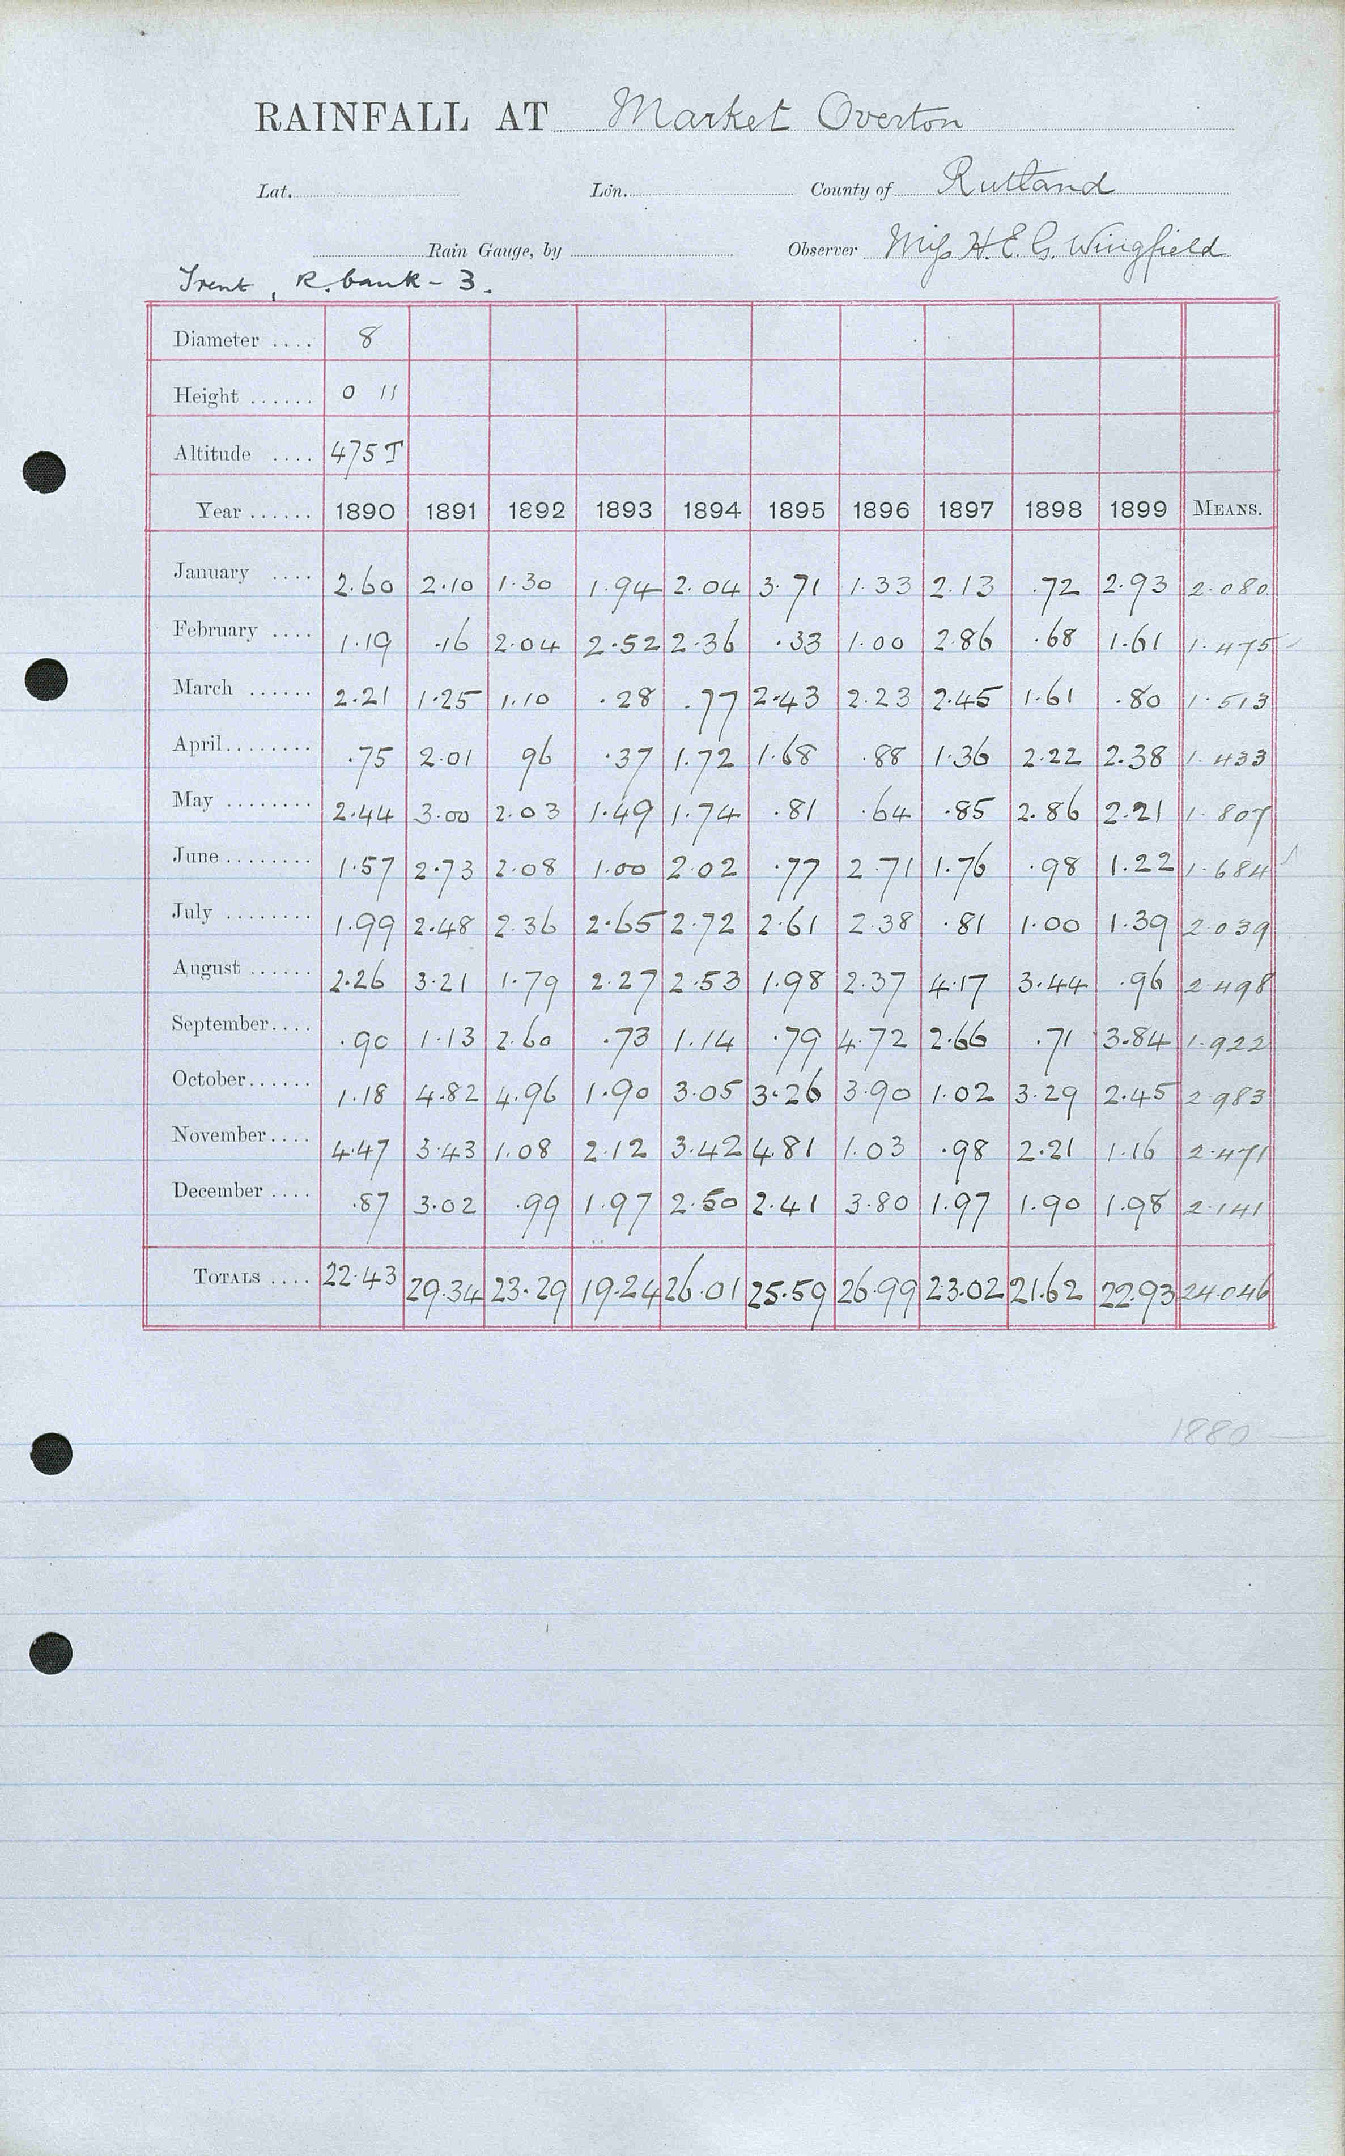 RAINFALL AT Market Overton
Lat. Lon. County of Rutland
Rain Gauge, by Observer Miss H. E. G. Wingfield
Trent, R. bank - 3.
Diameter .... 8
Height ...... 0 11
Altitude .... 475 T
Year ...... 1890 1891 1892 1893 1894 1895 1896 1897 1898 1899 MEANS.
January .... 2.60 2.10 1.30 1.94 2.04 3.71 1.33 2.13 .72 2.93 2.080
February .... 1.19 .16 2.04 2.52 2.36 .33 1.00 2.86 .68 1.61 1.475
March ...... 2.21 1.25 1.10 .28 .77 2.43 2.23 2.45 1.61 .80 1.513
April........ .75 2.01 96 .37 1.72 1.68 .88 1.36 2.22 2.38 1.433
May ........ 2.44 3.00 2.03 1.49 1.74 .81 .64 .85 2.86 2.21 1.807
June........ 1.57 2.73 2.08 1.00 2.02 .77 2.71 1.76 .98 1.22 1.684
July ........ 1.99 2.48 2.36 2.65 2.72 2.61 2.38 .81 1.00 1.39 2.039
August ...... 2.26 3.21 1.79 2.27 2.53 1.98 2.37 4.17 3.44 .96 2.498
September.... .90 1.13 2.60 .73 1.14 .79 4.72 2.66 .71 3.84 1.922
October...... 1.18 4.82 4.96 1.90 3.05 3.26 3.90 1.02 3.29 2.45 2.983
November.... 4.47 3.43 1.08 2.12 3.42 4.81 1.03 .98 2.21 1.16 2.471
December .... .87 3.02 .99 1.97 2.50 2.41 3.80 1.97 1.90 1.98 2.141
TOTALS .... 22.43 29.34 23.29 19.24 26.01 25.59 26.99 23.02 21.62 22.93 24.046
1880 —